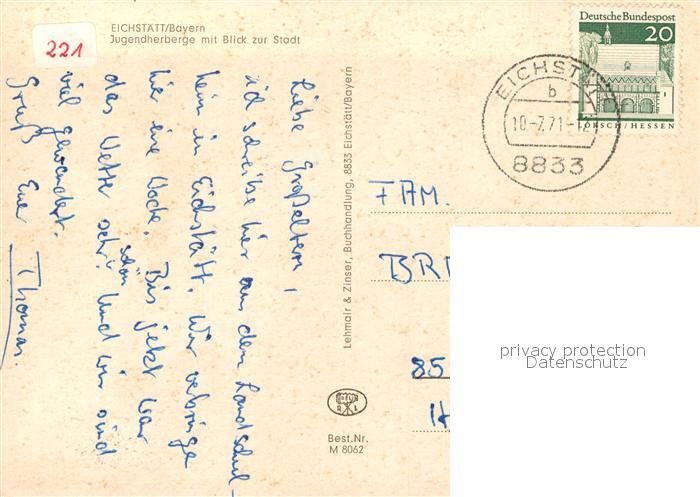 EICHSTÄTT/Bayern
Jugendherberge mit Blick zur Stadt
221
Deutsche Bundespost
20
LORSCH/HESSEN
EICHSTÄTT
b
10.-7.71-12
8833
Liebe Großeltern,
ich schreibe hier aus dem Landschul-
heim in Eichstätt. Wir verbringen
hier eine Woche. Bis jetzt war
das Wetter sehr schön und wir sind
viel gewandert.
Gruß Euer Thomas.
Lehmair & Zinser, Buchhandlung, 8833 Eichstätt/Bayern
FAM.
85
privacy protection
Datenschutz
Best.Nr.
M 8062